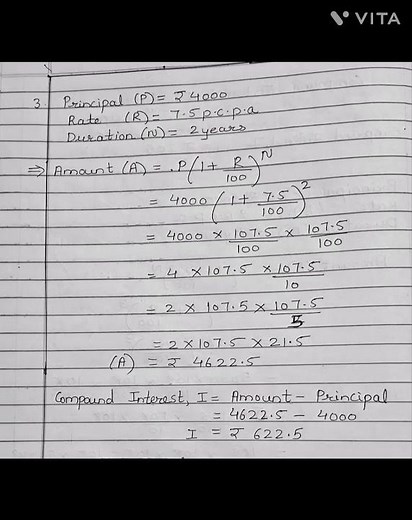 VITA
3. Principal (P) = ₹ 4000
Rate (R) = 7.5 p.c.p.a
Duration (N) = 2 years
⇒ Amount (A) = P(1 + R/100)^N
= 4000 (1 + 7.5/100)^2
= 4000 × 107.5/100 × 107.5/100
= 4 × 107.5 × 107.5/10
= 2 × 107.5 × 107.5/5
= 2 × 107.5 × 21.5
(A) = ₹ 4622.5
Compound Interest, I = Amount − Principal
= 4622.5 − 4000
I = ₹ 622.5